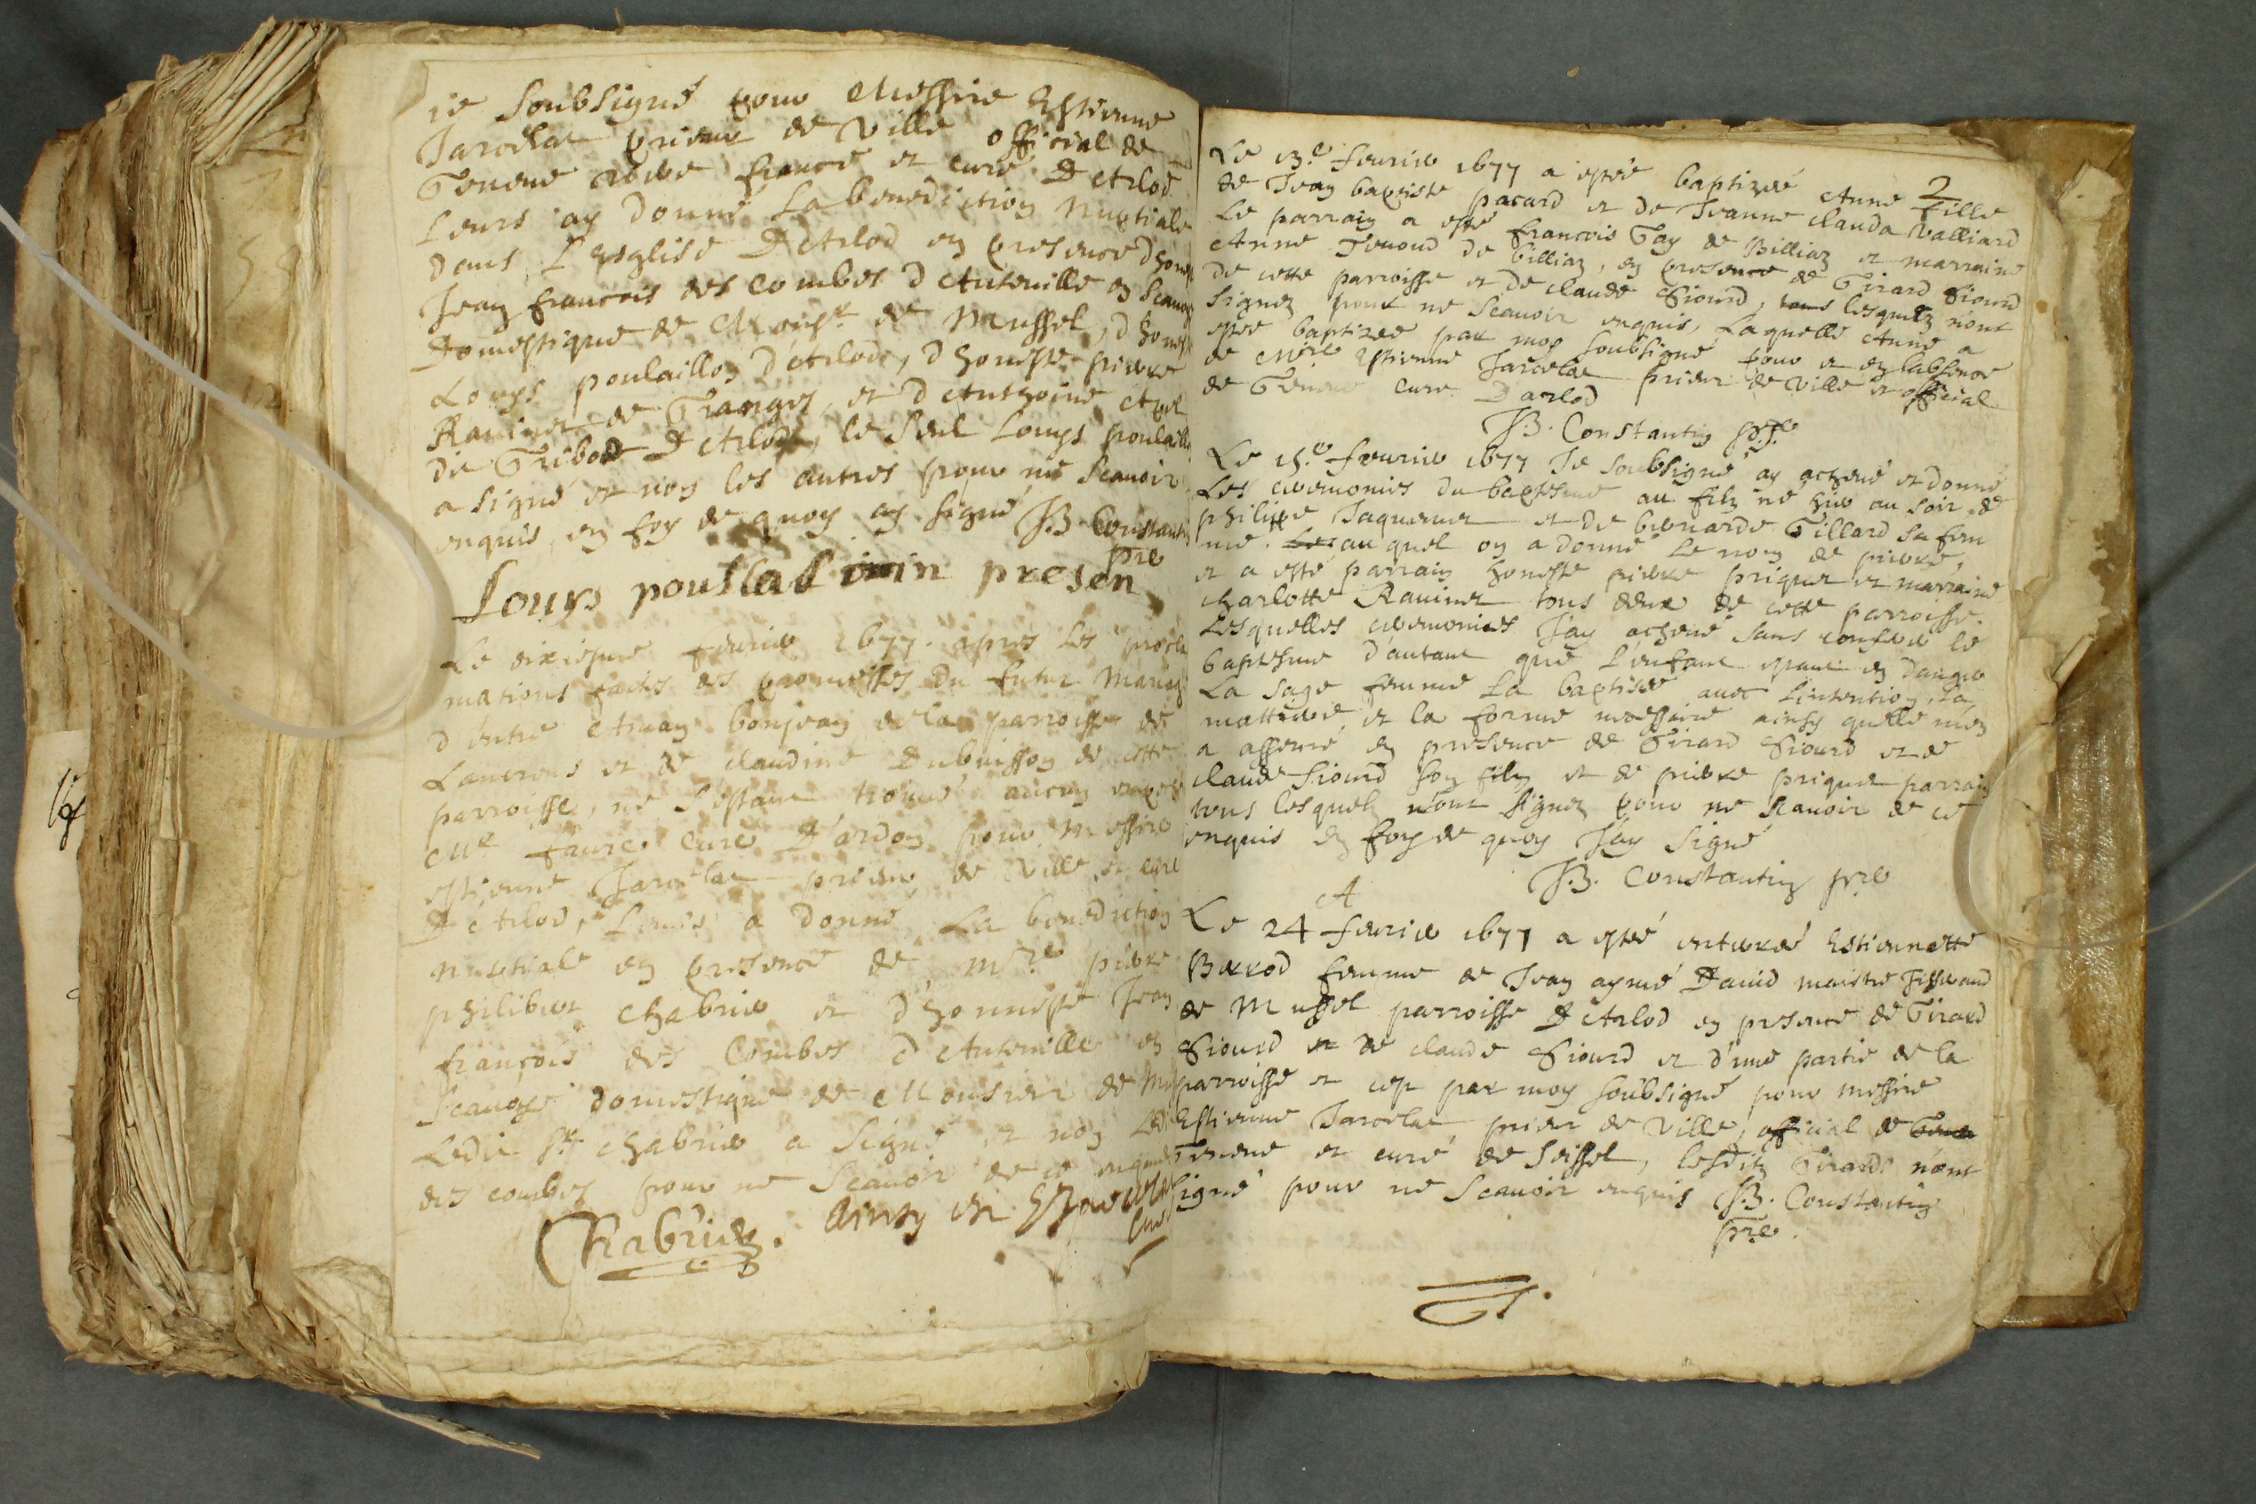 ie soubsigné pour Messire Estienne
Jarcelat prieur de Ville official de
Geneve rière france et curé D Arlod
Leurs ay donné La benediction Nuptiale
dans L'esglise D Arlod en presence d'hon
Jean francois des combes d'Anteville en
Domestique de Monsr de Mussel, d'honeste
Louys poulaillon D'Arlod, d'honeste pierre
Raviner de Granges, et d'Anthoine
dit Gribod D Arlod, le seul Louys
a signé et non les autres pour ne scavoir
enquis, en foy de quoy ay signé J.B. Constantin
pre
Louys present
Le dixiesme fevrier 1677 apres les procla
mations faites des promesses du futur Mariage
d'entre bonjean de la parroisse de
Lancrens et de claudine Dubuisson de cette
parroisse, ne s'estant trouvé aucun
Mr favre curé D'ardon pour Messire
estienne Jarcelat prieur de Ville et curé
D'Arlod, Leurs a donné La benediction
nuptiale en presence de Mre pierre
philibert chabrier et d'honneste Jean
françois des Combes d'Anteville en
Scavoye domestique de Monsieur de
Ledit Sr chabrier a signé, et non Ledit
des combes pour ne scavoir de ce enquis
Chabrier. Ainsy est
2
Le 13.e fevrier 1677 a esté baptizeé Anne fille
de Jean baptiste pacard et de Jeanne clauda Valliard
Le parrain a esté francois Gay de Billiaz et marraine
Anne Tenond de billiaz, en presence de Girard Siourd
de cette parroisse et de claude Siourd, tous lesquelz n'ont
signez pour ne scavoir enquis, Laquelle Anne a
esté baptizeé par moy soubsigné pour et en labsence
de Mere Estienne Jarcelat prieur de Ville et official
de Geneve curé D'arlod
J.B. Constantin pre
Le 15.e fevrier 1677 Je soubsigné ay achevé et donné
Les ceremonies du baptesme au filz né hier au soir de
philippe Jaquemet et de bernarde Gillard sa fem
me. auquel on a donné Le nom de pierre,
et a esté parrain honeste pierre priquet et marraine
charlotte Raviner tous deux de cette parroisse.
Lesquelles ceremonies J'ay achevé sans conferer le
baptesme d'autant que L'enfant estant en danger
La sage femme La baptisé avec L'intention, la
mattiere, et la forme necessaire ainsy qu'elle m'en
a asseuré en presence de Girard Siourd et de
claude Siourd son filz et de pierre priquet parrain
tous lesquelz n'ont signez pour ne scavoir de ce
enquis en foy de quoy J'ay signé
J.B. Constantin pre
Le 24 fevrier 1677 a esté enterreé Estiennette
Berrod femme de Jean aymé David maistre Tisserand
de Mussel parroisse D'Arlod en presence de Girard
Siourd et de claude Siourd et d'une partie de la
parroisse et par moy soubsigné pour messire
Estienne Jarcelat prieur de Ville, official de
Geneve et curé de Seissel, lesditz Girards n'ont
signé pour ne scavoir enquis J.B. Constantin
pre.